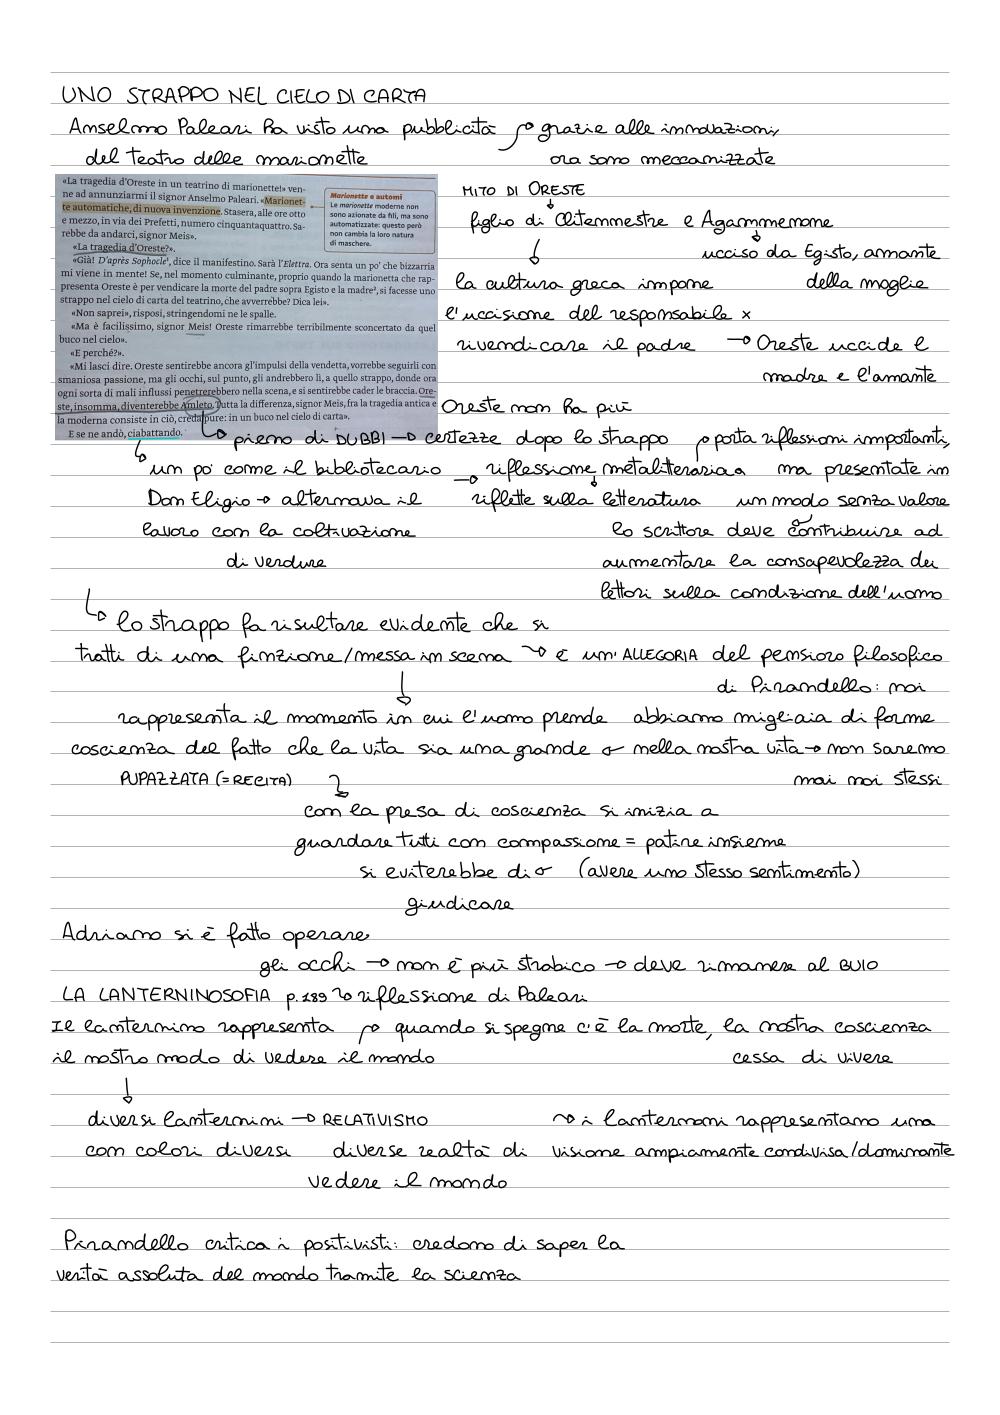 UNO STRAPPO NEL CIELO DI CARTA
Anselmo Paleari ha visto una pubblicità grazie alle innovazioni,
del teatro delle marionette ora sono meccanizzate
«La tragedia d'Oreste in un teatrino di marionette!» ven-
ne ad annunziarmi il signor Anselmo Paleari. «Marionet-
te automatiche, di nuova invenzione. Stasera, alle ore otto
e mezzo, in via dei Prefetti, numero cinquantaquattro. Sa-
rebbe da andarci, signor Meis».
«La tragedia d'Oreste?».
«Già! D'après Sophocle¹, dice il manifestino. Sarà l'Elettra. Ora senta un po' che bizzarria
mi viene in mente! Se, nel momento culminante, proprio quando la marionetta che rap-
presenta Oreste è per vendicare la morte del padre sopra Egisto e la madre², si facesse uno
strappo nel cielo di carta del teatrino, che avverrebbe? Dica lei».
«Non saprei», risposi, stringendomi ne le spalle.
«Ma è facilissimo, signor Meis! Oreste rimarrebbe terribilmente sconcertato da quel
buco nel cielo».
«E perché?».
«Mi lasci dire. Oreste sentirebbe ancora gl'impulsi della vendetta, vorrebbe seguirli con
smaniosa passione, ma gli occhi, sul punto, gli andrebbero lì, a quello strappo, donde ora
ogni sorta di mali influssi penetrerebbero nella scena, e si sentirebbe cader le braccia. Ore-
ste, insomma, diventerebbe Amleto. Tutta la differenza, signor Meis, fra la tragedia antica e
la moderna consiste in ciò, creda pure: in un buco nel cielo di carta».
E se ne andò, ciabattando.
Marionetta e automi
Le marionette moderne non
sono azionate da fili, ma sono
automatizzate: questo però
non cambia la loro natura
di maschere.
MITO DI ORESTE
figlio di Clitemmestre e Agammemone
ucciso da Egisto, amante
la cultura greca impone della moglie
l'uccisione del responsabile x
rivendicare il padre → Oreste uccide l
madre e l'amante
Oreste non ha più
pieno di DUBBI → certezze dopo lo strappo porta riflessioni importanti,
un po' come il bibliotecario → riflessione metaletteraria ma presentate in
Don Eligio → alternava il riflette sulla letteratura un modo senza valore
lavoro con la coltivazione lo scrittore deve contribuire ad
di verdure aumentare la consapevolezza dei
lettori sulla condizione dell'uomo
lo strappo fa risultare evidente che si
tratti di una finzione/messa in scena → è un'ALLEGORIA del pensioro filosofico
di Pirandello: noi
rappresenta il momento in cui l'uomo prende abbiamo migliaia di forme
coscienza del fatto che la vita sia una grande nella nostra vita → non saremo
PUPAZZATA (= RECITA) mai noi stessi
con la presa di coscienza si inizia a
guardare tutti con compassione = patire insieme
si eviterebbe di (avere uno stesso sentimento)
giudicare
Adriano si è fatto operare
gli occhi → non è più strabico → deve rimanere al BUIO
LA LANTERNINOSOFIA p.189 → riflessione di Paleari
Il lanternino rappresenta quando si spegne c'è la morte, la nostra coscienza
il nostro modo di vedere il mondo cessa di vivere
diversi lanternini → RELATIVISMO → i lanternoni rappresentano una
con colori diversi diverse realtà di visione ampiamente condivisa/dominante
vedere il mondo
Pirandello critica i positivisti: credono di saper la
verità assoluta del mondo tramite la scienza